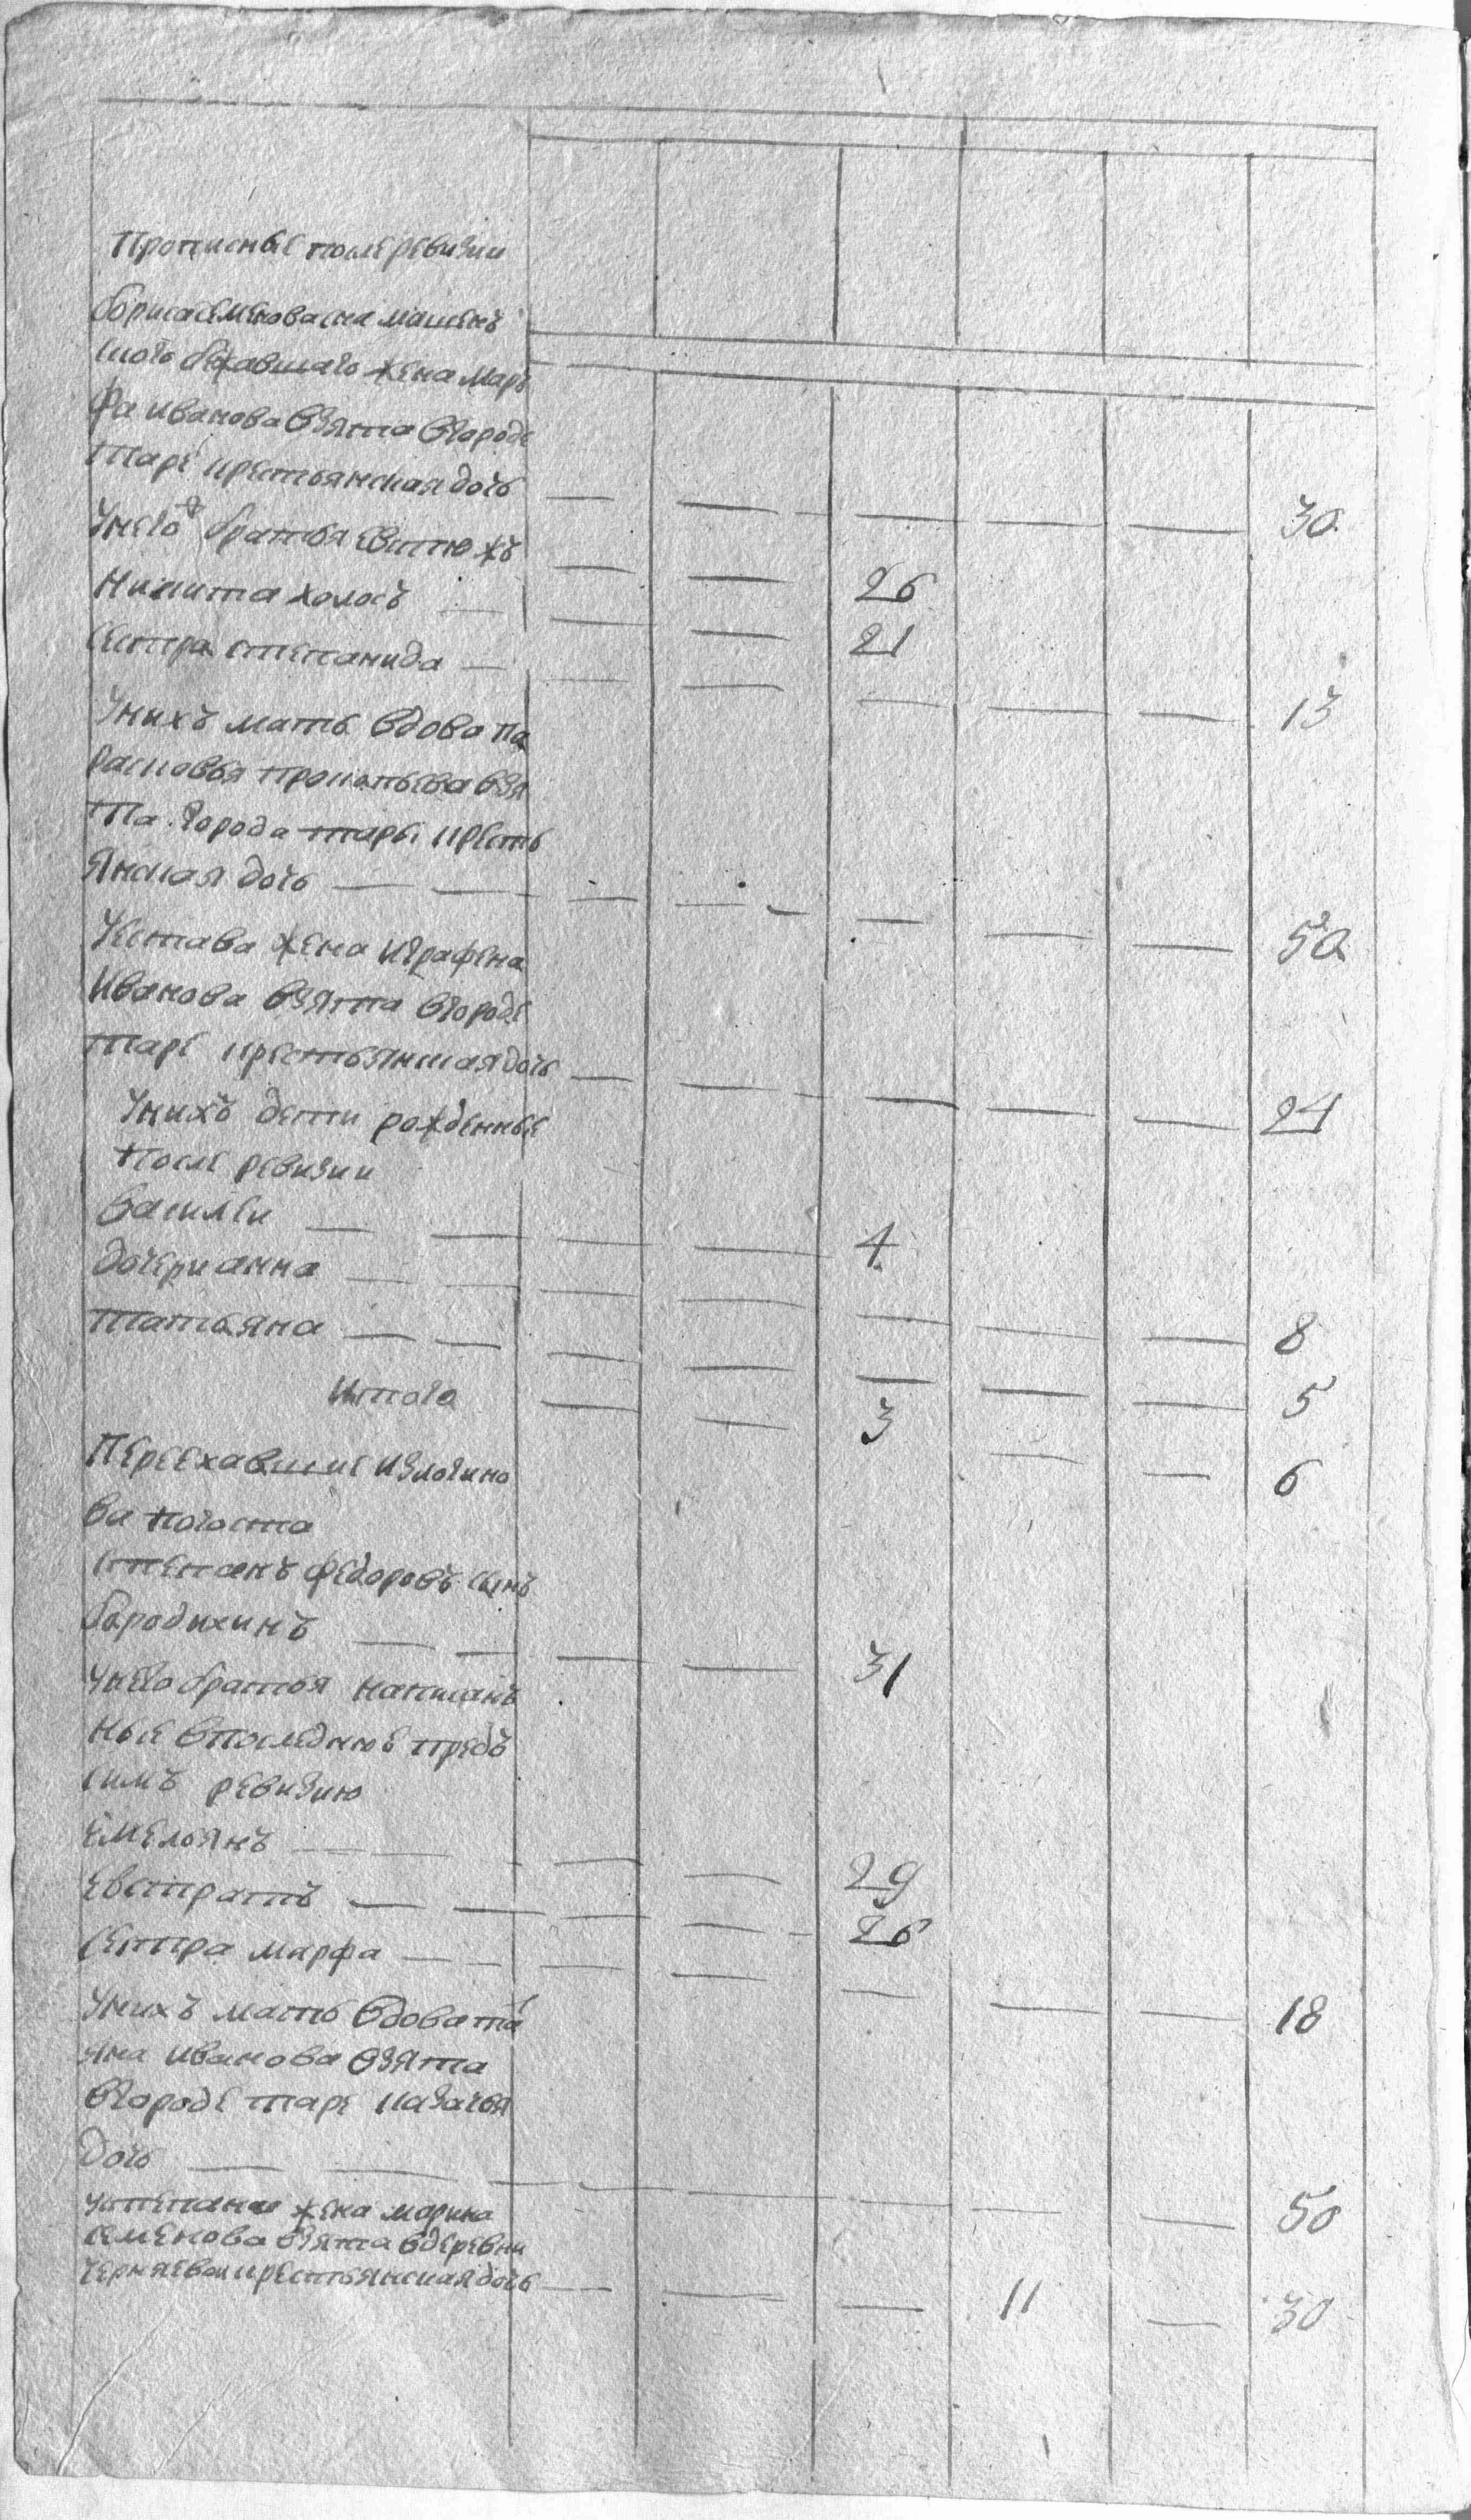 Прописные после ревизии
Бориса Семенова сна машен
ского бежавшаго жена мар
фа иванова взята вгороде
таре крестьянская дочь — — — — — 30
Унего братья евстюжъ — — 26
Никита холосъ — — — 21
Сестра степанида — — — — — — 13
Унихъ мать вдова па
расковья прокопьева взя
та города тары кресть
янская дочь — — — — — — — 50
Устава жена играфена
Иванова взята вгороде
таре крестьянская дочь — — — — — 24
Унихъ дети рожденные
после ревизии
Василеи — — — — 4
Дочери анна — — — — — — — 8
Татьяна — — — — — — — 5
Итого — — 3 — — 6
Переехавшие излогино
ва погоста
степанъ федоровъ сынъ
бородихинъ — — — — 31
Унего братья написан
ные впоследнюе предъ
симъ ревизию
Емельянъ — — — — 29
Евстратъ — — — — 26
Сестра марфа — — — — — — — 18
Унихъ мать вдова тать
яна иванова взята
вгороде таре казачья
дочь — — — — — — — 50
Устепана жена марина
семенова взята вдеревни
черняевои крестьянская дочь — — — 11 — 30